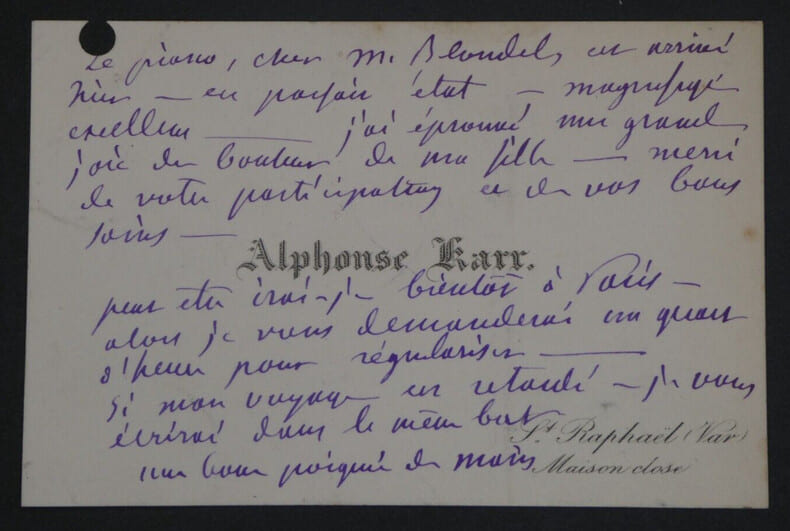 Le piano, cher M. Blondel, est arrivé
hier — en parfait état — magnifique
excellent — j'ai éprouvé une grande
joie du bonheur de ma fille — merci
de votre participation et de vos bons
soins —
Alphonse Karr.
peut etre irai-je bientôt à Paris —
alors je vous demanderai un quart
d'heure pour régulariser —
si mon voyage est retardé — je vous
écrirai dans le même but
une bonne poignée de mains
St. Raphaël (Var)
Maison close